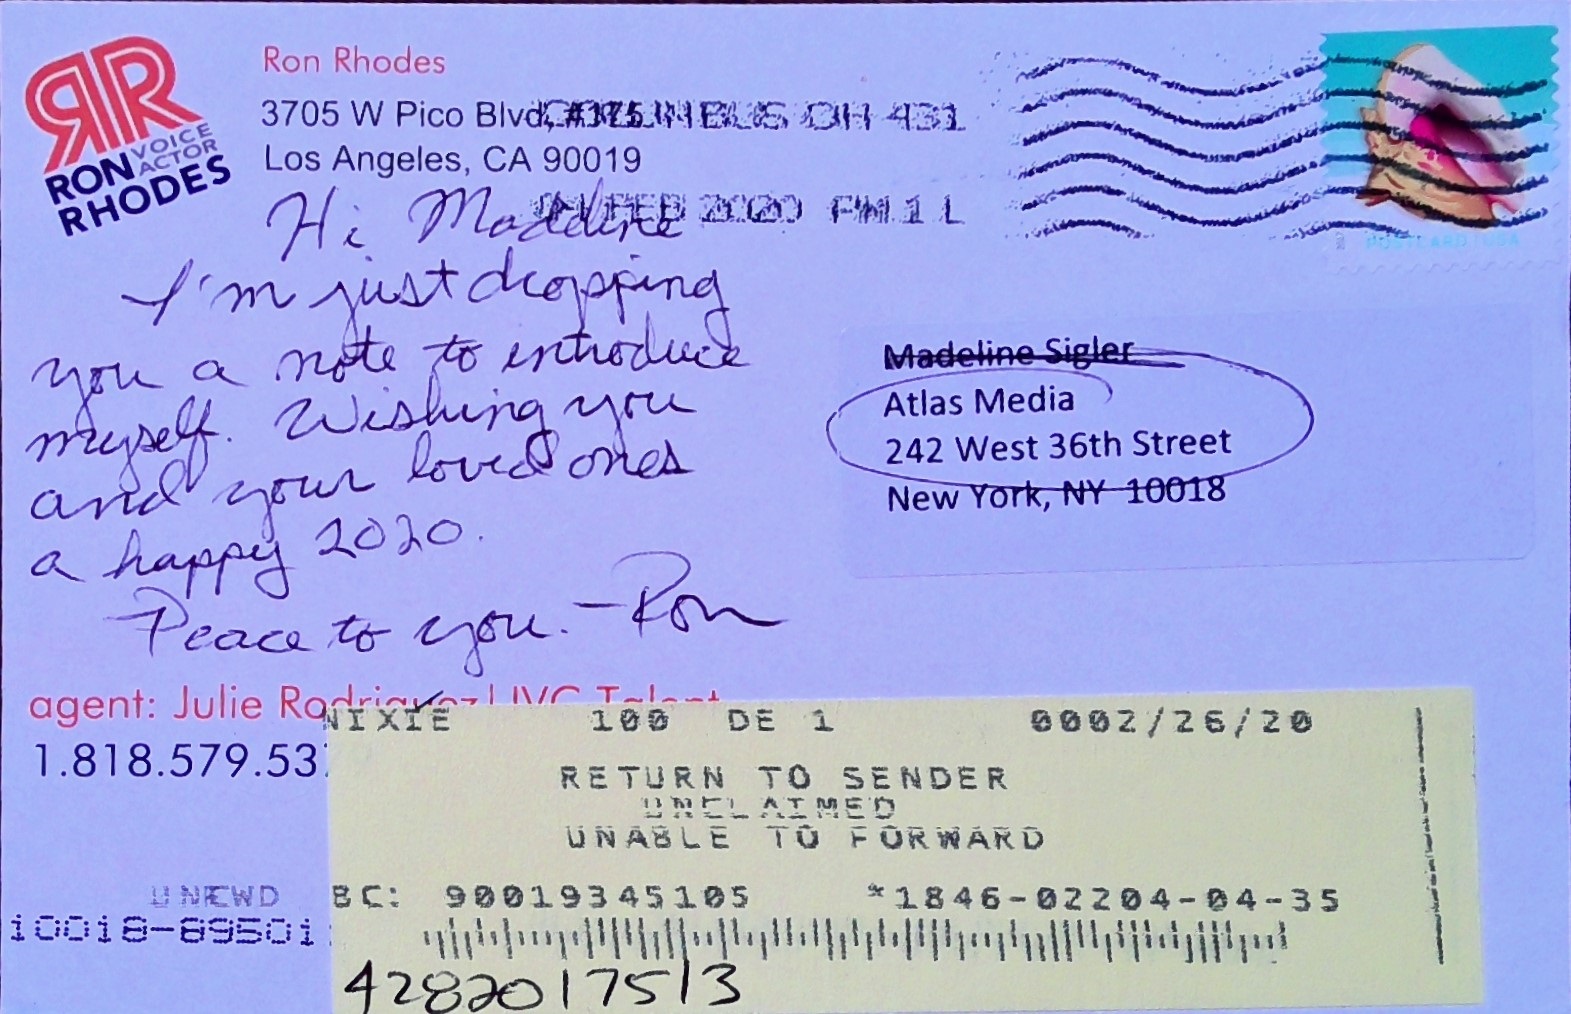 RR
RON VOICE
ACTOR
RHODES
Ron Rhodes
3705 W Pico Blvd, #375
Los Angeles, CA 90019
COLUMBUS OH 431
FEB 2020 PM 1 L
POSTCARD USA
Hi Madeline
I'm just dropping
you a note to introduce
myself. Wishing you
and your loved ones
a happy 2020.
Peace to you. -Ron
Madeline Sigler
Atlas Media
242 West 36th Street
New York, NY 10018
agent: Julie Rodriguez | JVC Talent
1.818.579.53
NIXIE 100 DE 1 0002/26/20
RETURN TO SENDER
UNCLAIMED
UNABLE TO FORWARD
UNK WD
BC: 90019345105 *1846-02204-04-35
10018-69501
4282017513